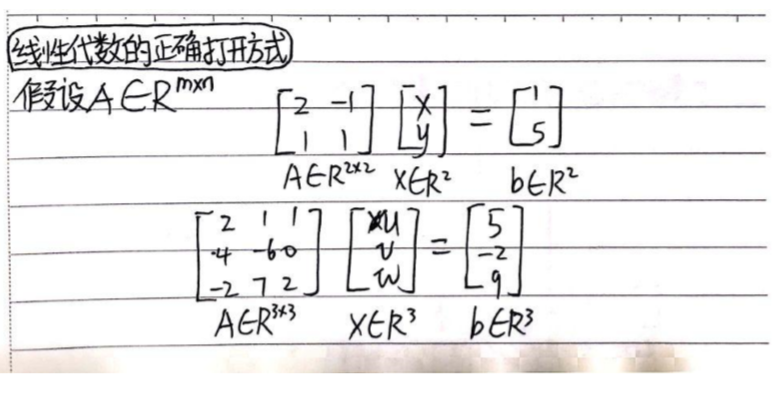 线性代数的正确打开方式
假设A∈R^{m×n}
[2 -1; 1 1] [x; y] = [1; 5]
A∈R^{2×2} X∈R^2 b∈R^2
[2 1 1; 4 -6 0; -2 7 2] [u; v; w] = [5; -2; 9]
A∈R^{3×3} X∈R^3 b∈R^3